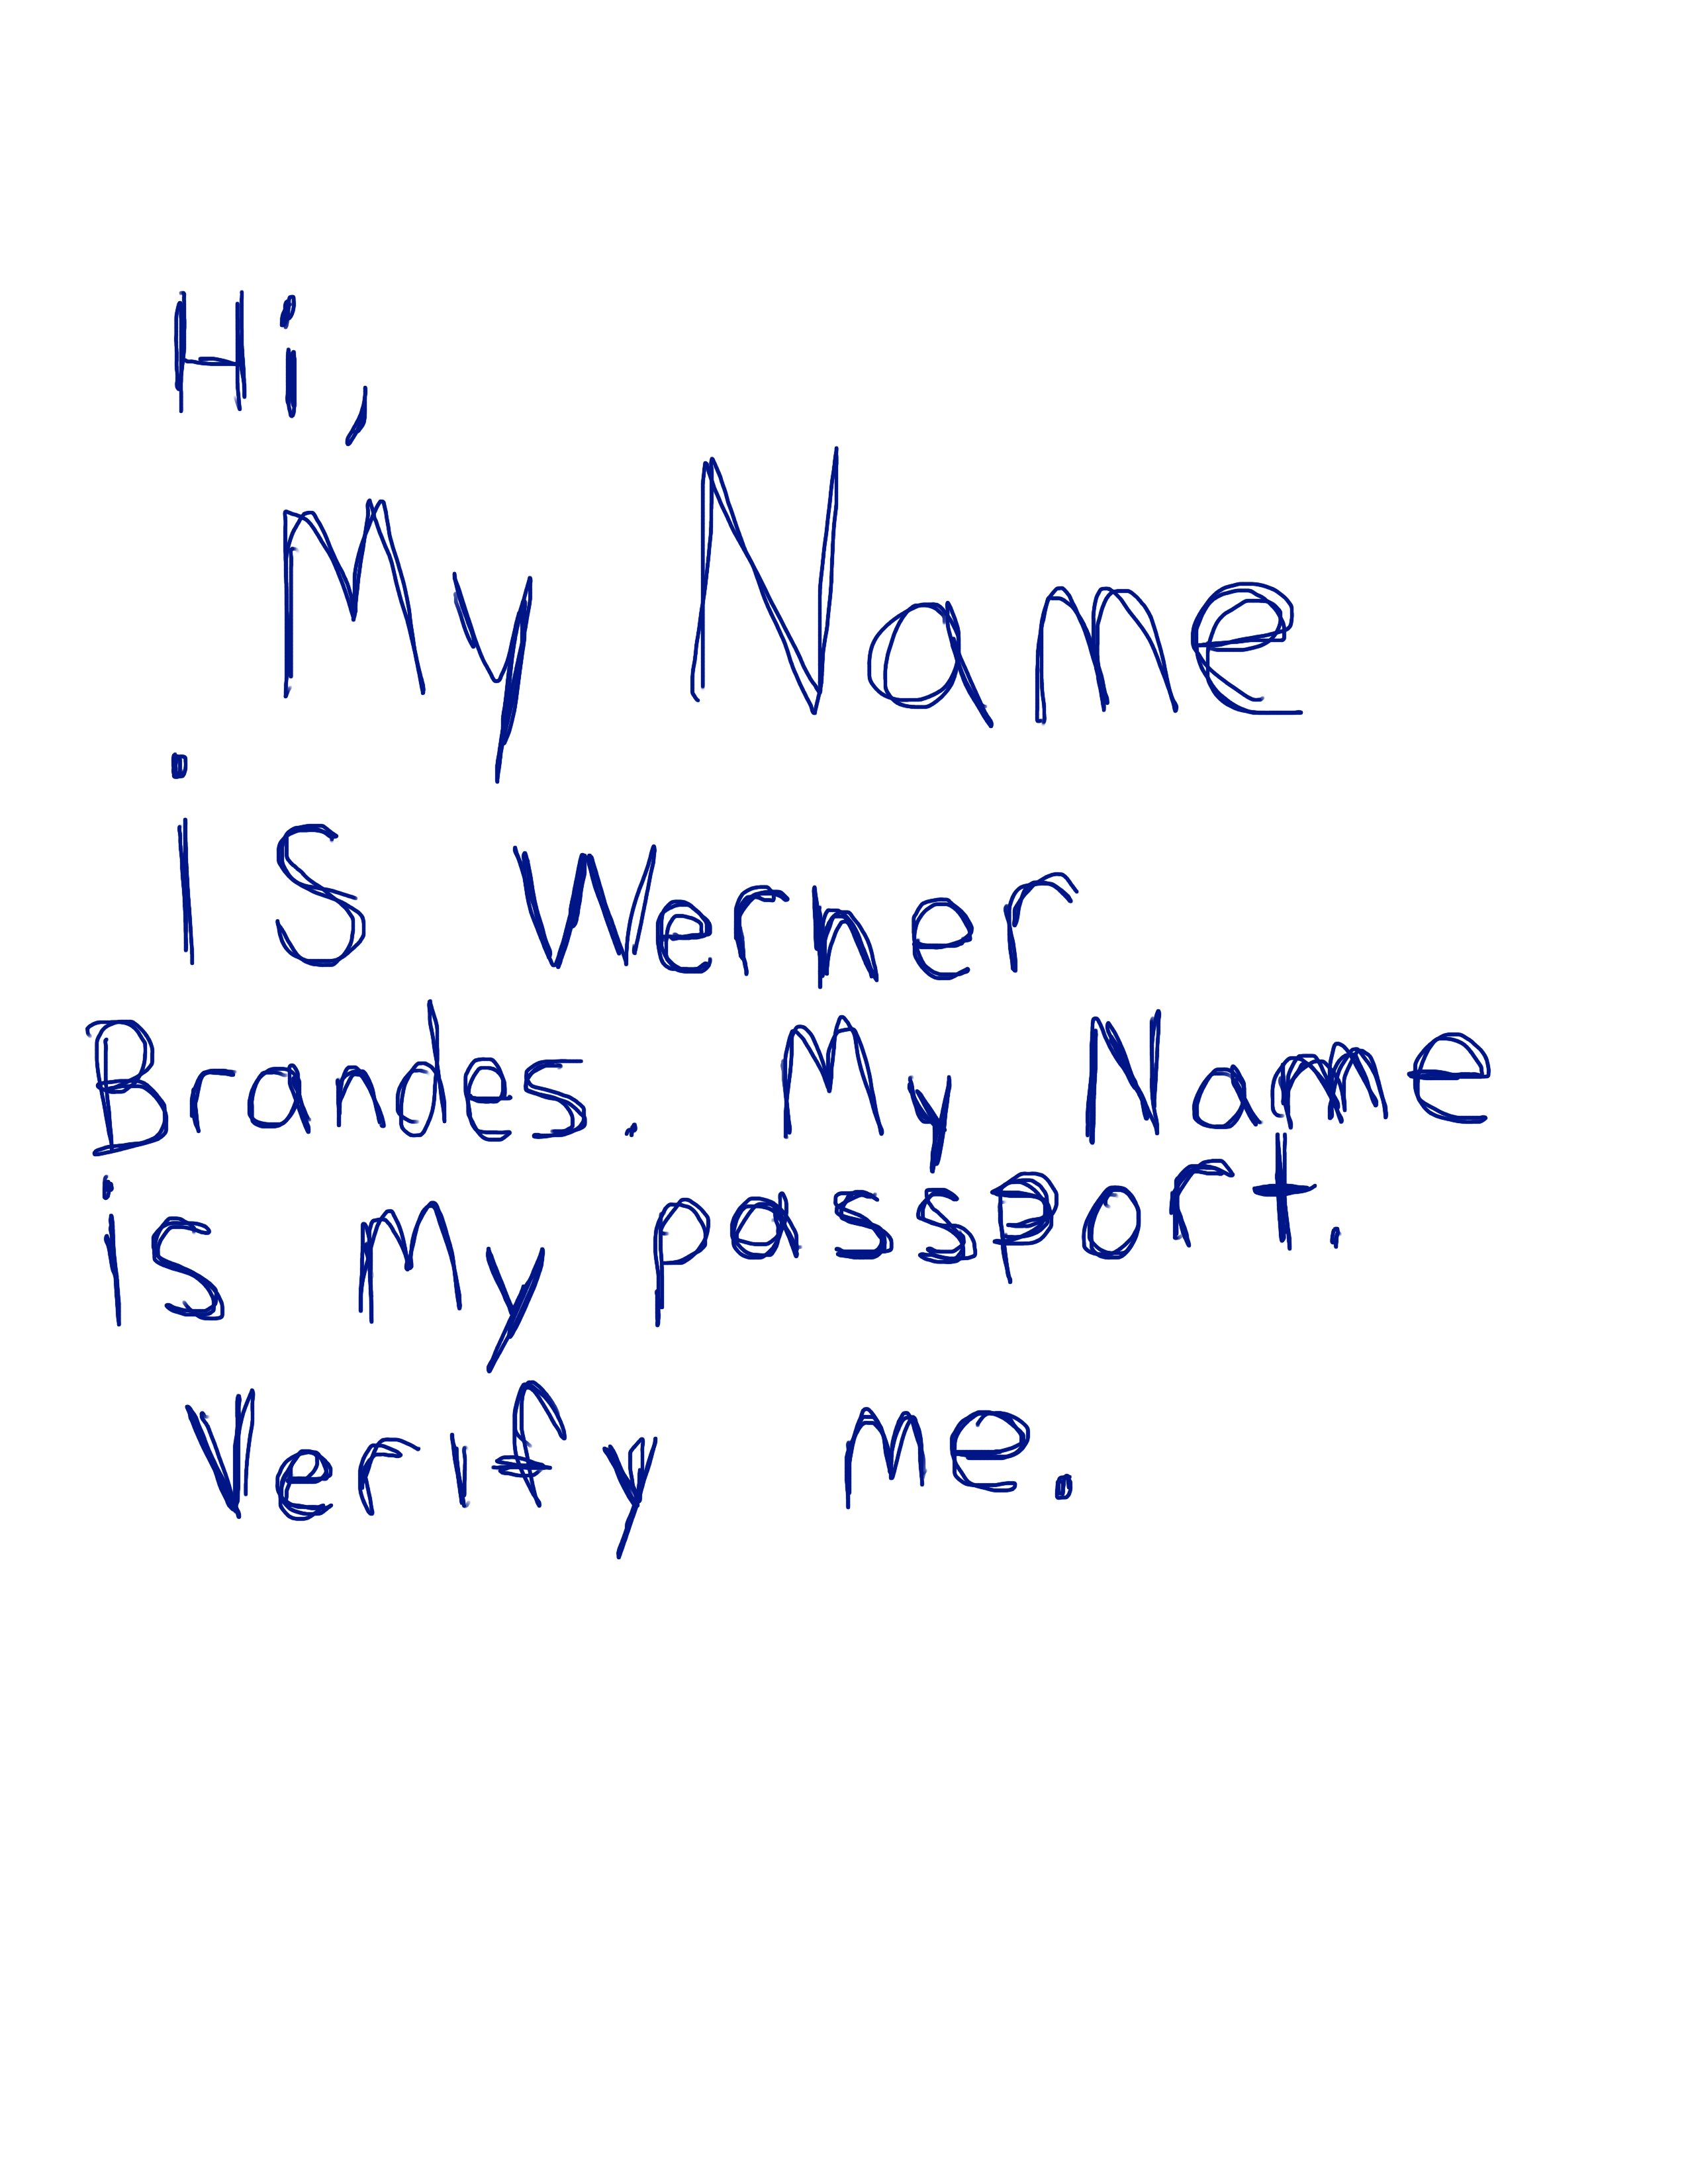 Hi,
My Name
is Werner
Brandes. My Name
is My passport.
Verify me.